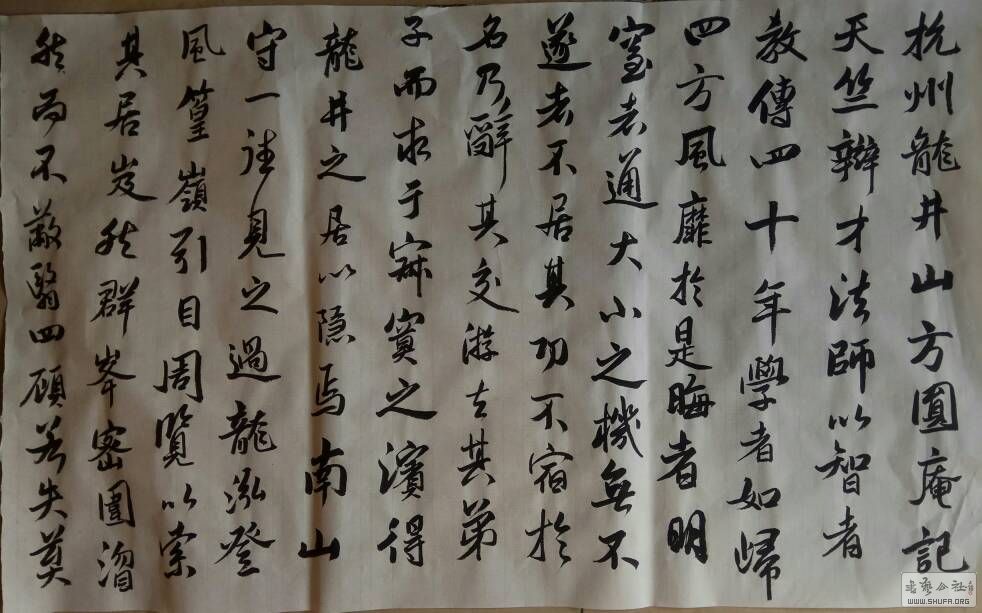 杭州龍井山方圓庵記
天竺辯才法師以智者
教傳四十年學者如歸
四方風靡於是晦者明
窒者通大小之機無不
遂者不居其功不宿於
名乃辭其交游去其弟
子而求于寂寞之濱得
龍井之居以隱焉南山
守一往見之過龍泓登
風篁嶺引目周覽以索
其居岌然群峯密圍溜
然而不蔽翳四顧若失莫
書法公社
WWW.SHUFA.ORG